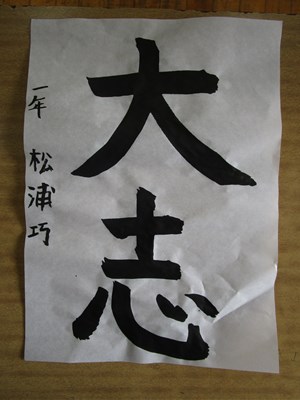 大志
一年 松浦巧